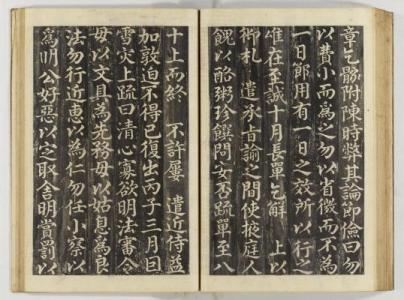 章乞骸附陳時弊其論節儉曰勿
以費小而為之勿以省微而不為
一日節用有一日之效所以行之
唯在至誠十月長單乞解 上以
御札 遣承旨諭之間使掖庭人
餽以酪粥珍饌問安否疏單至八
十上而終 不許屢 遣近侍益
加敦迫不得已復出丙子三月因
雹灾上疏曰清心寡欲明法審令
毋以文具為先務毋以姑息為良
法勿行近惠以為仁勿任小察以
為明公好惡以定取舍明賞罰以